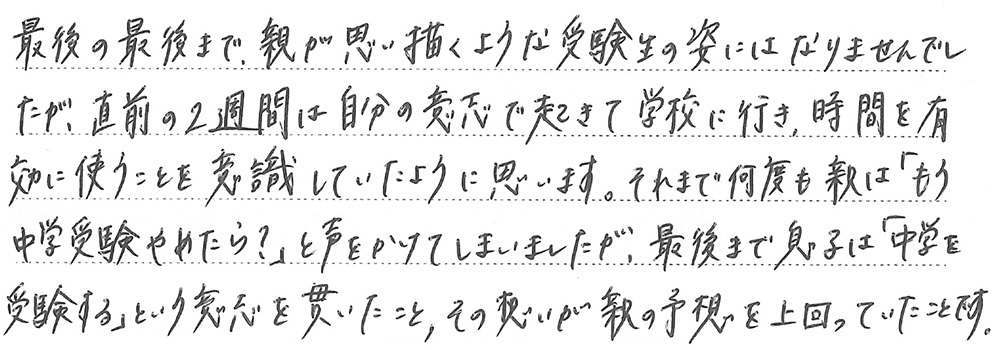 最後の最後まで、親が思い描くような受験生の姿にはなりませんでし
たが、直前の2週間は自分の意志で起きて学校に行き、時間を有
効に使うことを意識していたように思います。それまで何度も親は「もう
中学受験やめたら?」と声をかけてしまいましたが、最後まで息子は「中学を
受験する」という意志を貫いたこと、その想いが親の予想を上回っていたことです。